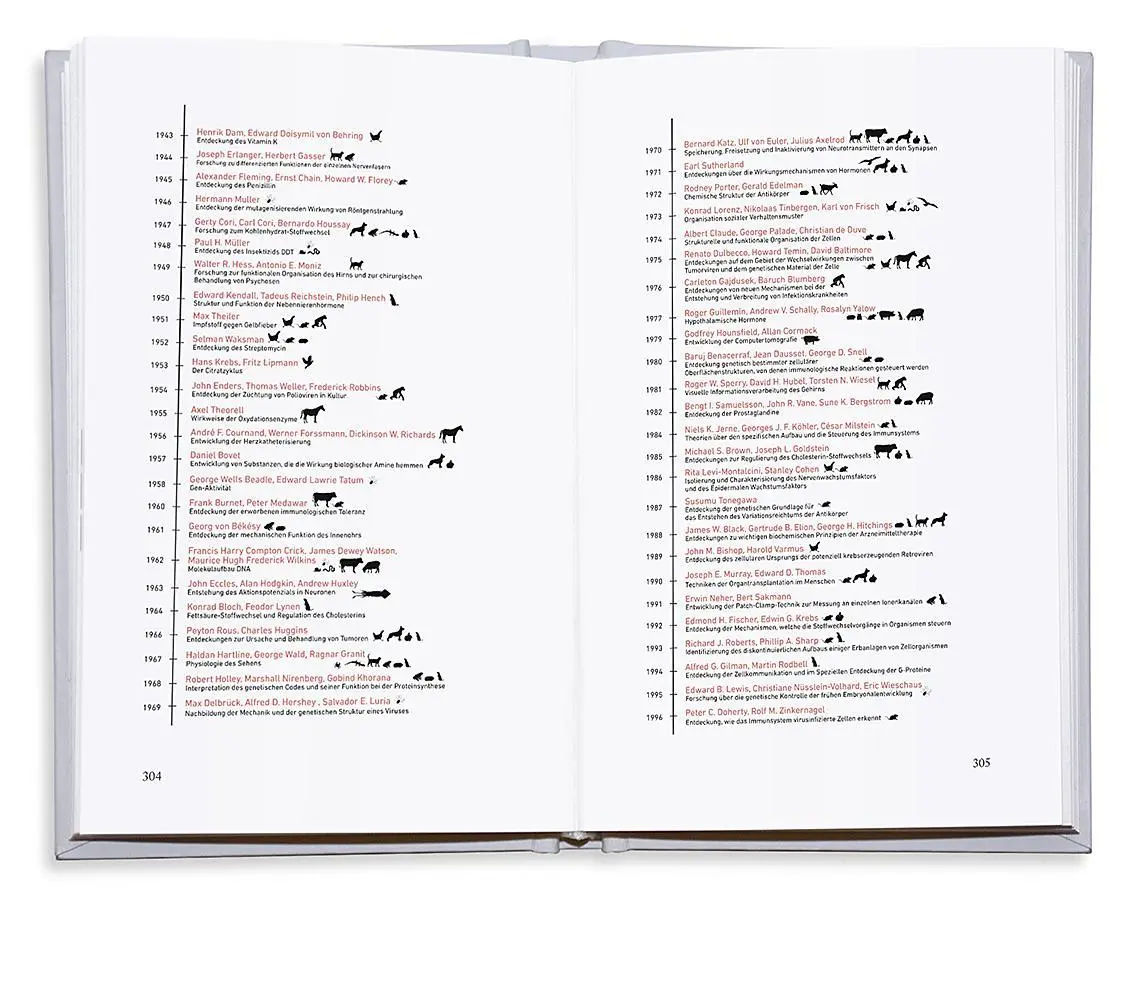 1943 Henrik Dam, Edward Doisymil von Behring
Entdeckung des Vitamin K
1944 Joseph Erlanger, Herbert Gasser
Forschung zu differenzierten Funktionen der einzelnen Nervenfasern
1945 Alexander Fleming, Ernst Chain, Howard W. Florey
Entdeckung des Penizillin
1946 Hermann Muller
Entdeckung der mutagenisierenden Wirkung von Röntgenstrahlung
1947 Gerty Cori, Carl Cori, Bernardo Houssay
Forschung zum Kohlenhydrat-Stoffwechsel
1948 Paul H. Müller
Entdeckung des Insektizids DDT
1949 Walter R. Hess, Antonio E. Moniz
Forschung zur funktionalen Organisation des Hirns und zur chirurgischen
Behandlung von Psychosen
1950 Edward Kendall, Tadeus Reichstein, Philip Hench
Struktur und Funktion der Nebennierenhormone
1951 Max Theiler
Impfstoff gegen Gelbfieber
1952 Selman Waksman
Entdeckung des Streptomycin
1953 Hans Krebs, Fritz Lipmann
Der Citratzyklus
1954 John Enders, Thomas Weller, Frederick Robbins
Entdeckung der Züchtung von Polioviren in Kultur
1955 Axel Theorell
Wirkweise der Oxydationsenzyme
1956 André F. Cournand, Werner Forssmann, Dickinson W. Richards
Entwicklung der Herzkatheterisierung
1957 Daniel Bovet
Entwicklung von Substanzen, die die Wirkung biologischer Amine hemmen
1958 George Wells Beadle, Edward Lawrie Tatum
Gen-Aktivität
1960 Frank Burnet, Peter Medawar
Entdeckung der erworbenen immunologischen Toleranz
1961 Georg von Békésy
Entdeckung der mechanischen Funktion des Innenohrs
Francis Harry Compton Crick, James Dewey Watson,
1962 Maurice Hugh Frederick Wilkins
Molekulaufbau DNA
1963 John Eccles, Alan Hodgkin, Andrew Huxley
Entstehung des Aktionspotenzials in Neuronen
1964 Konrad Bloch, Feodor Lynen
Fettsäure-Stoffwechsel und Regulation des Cholesterins
1966 Peyton Rous, Charles Huggins
Entdeckungen zur Ursache und Behandlung von Tumoren
1967 Haldan Hartline, George Wald, Ragnar Granit
Physiologie des Sehens
1968 Robert Holley, Marshall Nirenberg, Gobind Khorana
Interpretation des genetischen Codes und seiner Funktion bei der Proteinsynthese
1969 Max Delbrück, Alfred D. Hershey , Salvador E. Luria
Nachbildung der Mechanik und der genetischen Struktur eines Viruses
304
1970 Bernard Katz, Ulf von Euler, Julius Axelrod
Speicherung, Freisetzung und Inaktivierung von Neurotransmittern an den Synapsen
1971 Earl Sutherland
Entdeckungen über die Wirkungsmechanismen von Hormonen
1972 Rodney Porter, Gerald Edelman
Chemische Struktur der Antikörper
1973 Konrad Lorenz, Nikolaas Tinbergen, Karl von Frisch
Organisation sozialer Verhaltensmuster
1974 Albert Claude, George Palade, Christian de Duve
Strukturelle und funktionale Organisation der Zellen
1975 Renato Dulbecco, Howard Temin, David Baltimore
Entdeckungen auf dem Gebiet der Wechselwirkungen zwischen
Tumorviren und dem genetischen Material der Zelle
1976 Carleton Gajdusek, Baruch Blumberg
Entdeckungen von neuen Mechanismen bei der
Entstehung und Verbreitung von Infektionskrankheiten
1977 Roger Guillemin, Andrew V. Schally, Rosalyn Yalow
Hypothalamische Hormone
1979 Godfrey Hounsfield, Allan Cormack
Entwicklung der Computertomografie
1980 Baruj Benacerraf, Jean Dausset, George D. Snell
Entdeckung genetisch bestimmter zellulärer
Oberflächenstrukturen, von denen immunologische Reaktionen gesteuert werden
1981 Roger W. Sperry, David H. Hubel, Torsten N. Wiesel
Visuelle Informationsverarbeitung des Gehirns
1982 Bengt I. Samuelsson, John R. Vane, Sune K. Bergstrom
Entdeckung der Prostaglandine
1984 Niels K. Jerne, Georges J. F. Köhler, César Milstein
Theorien über den spezifischen Aufbau und die Steuerung des Immunsystems
1985 Michael S. Brown, Joseph L. Goldstein
Entdeckungen zur Regulierung des Cholesterin-Stoffwechsels
1986 Rita Levi-Montalcini, Stanley Cohen
Isolierung und Charakterisierung des Nervenwachstumsfaktors
und des Epidermalen Wachstumsfaktors
1987 Susumu Tonegawa
Entdeckung der genetischen Grundlage für
das Entstehen des Variationsreichtums der Antikörper
1988 James W. Black, Gertrude B. Elion, George H. Hitchings
Entdeckungen zu wichtigen biochemischen Prinzipien der Arzneimitteltherapie
1989 John M. Bishop, Harold Varmus
Entdeckung des zellulären Ursprungs der potenziell krebserzeugenden Retroviren
1990 Joseph E. Murray, Edward D. Thomas
Techniken der Organtransplantation im Menschen
1991 Erwin Neher, Bert Sakmann
Entwicklung der Patch-Clamp-Technik zur Messung an einzelnen Ionenkanälen
1992 Edmond H. Fischer, Edwin G. Krebs
Entdeckung der Mechanismen, welche die Stoffwechselvorgänge in Organismen steuern
1993 Richard J. Roberts, Phillip A. Sharp
Identifizierung des diskontinuierlichen Aufbaus einiger Erbanlagen von Zellorganismen
1994 Alfred G. Gilman, Martin Rodbell
Entdeckung der Zellkommunikation und im Speziellen Entdeckung der G-Proteine
1995 Edward B. Lewis, Christiane Nüsslein-Volhard, Eric Wieschaus
Forschung über die genetische Kontrolle der frühen Embryonalentwicklung
1996 Peter C. Doherty, Rolf M. Zinkernagel
Entdeckung, wie das Immunsystem virusinfizierte Zellen erkennt
305